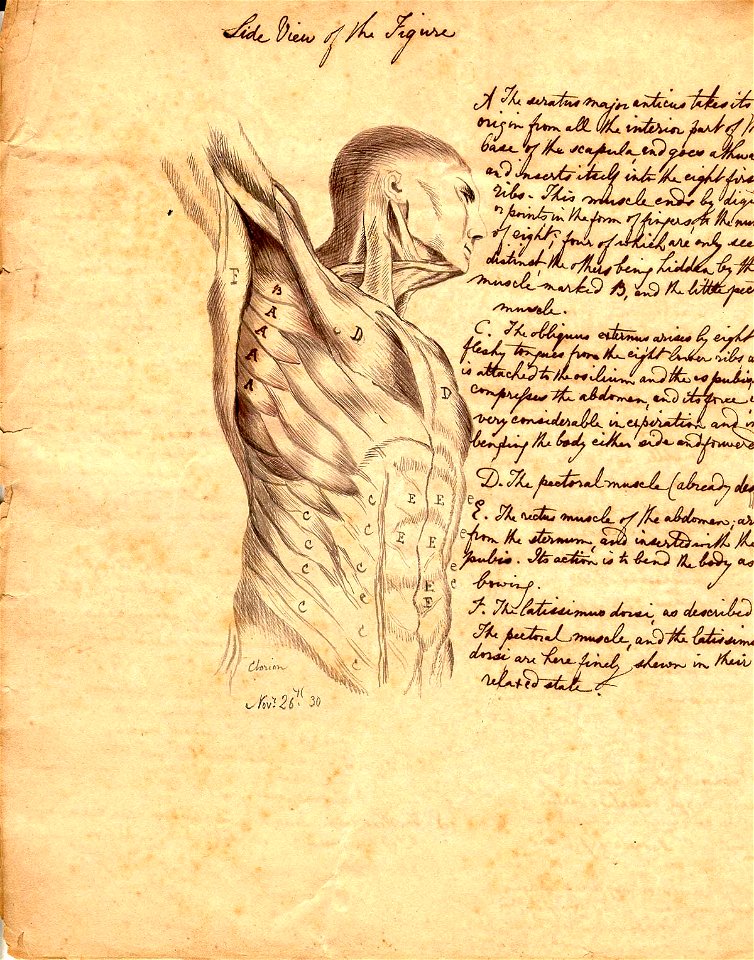 Side View of the Figure
A The seratus major anticus takes its
origin from all the interior part of
base of the scapula, and goes
and inserts itself into the eight firs
ribs. This muscle ends by digi
or points in the form of fingers, to the nu
of eight; four of which are only see
distinct, the others being hidden by th
muscle marked B, and the little pec
muscle.
C. The obliquus externus arises by eight
fleshy tongues from the eight lower ribs
is attached to the os ilium, and the os pubis,
compresses the abdomen, and its force
very considerable in expiration and in
bending the body either side and forward
D. The pectoral muscle (already des
E. The rectus muscle of the abdomen, ar
from the sternum, and inserted with the
pubis. Its action is to bend the body as
bowing.
F. The latissimus dorsi, as described
The pectoral muscle, and the latissim
dorsi are here finely shewn in their
relaxed state.
F
B
A
A
A
A
A
D
D
C
C
C
C
C
C
C
C
C
E
E
E
E
E
E
e
e
e
e
Clorion
Novr. 26th. 30